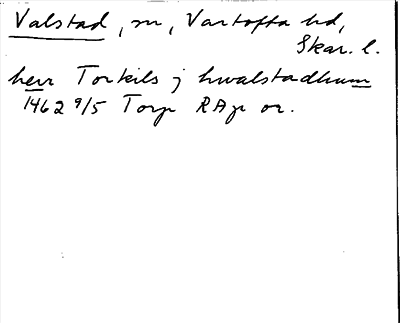 Valstad, sn, Vartofta hd,
Skar. l.
herr Torkils j hwalstadhum
1462 9/5 Torp RAp or.